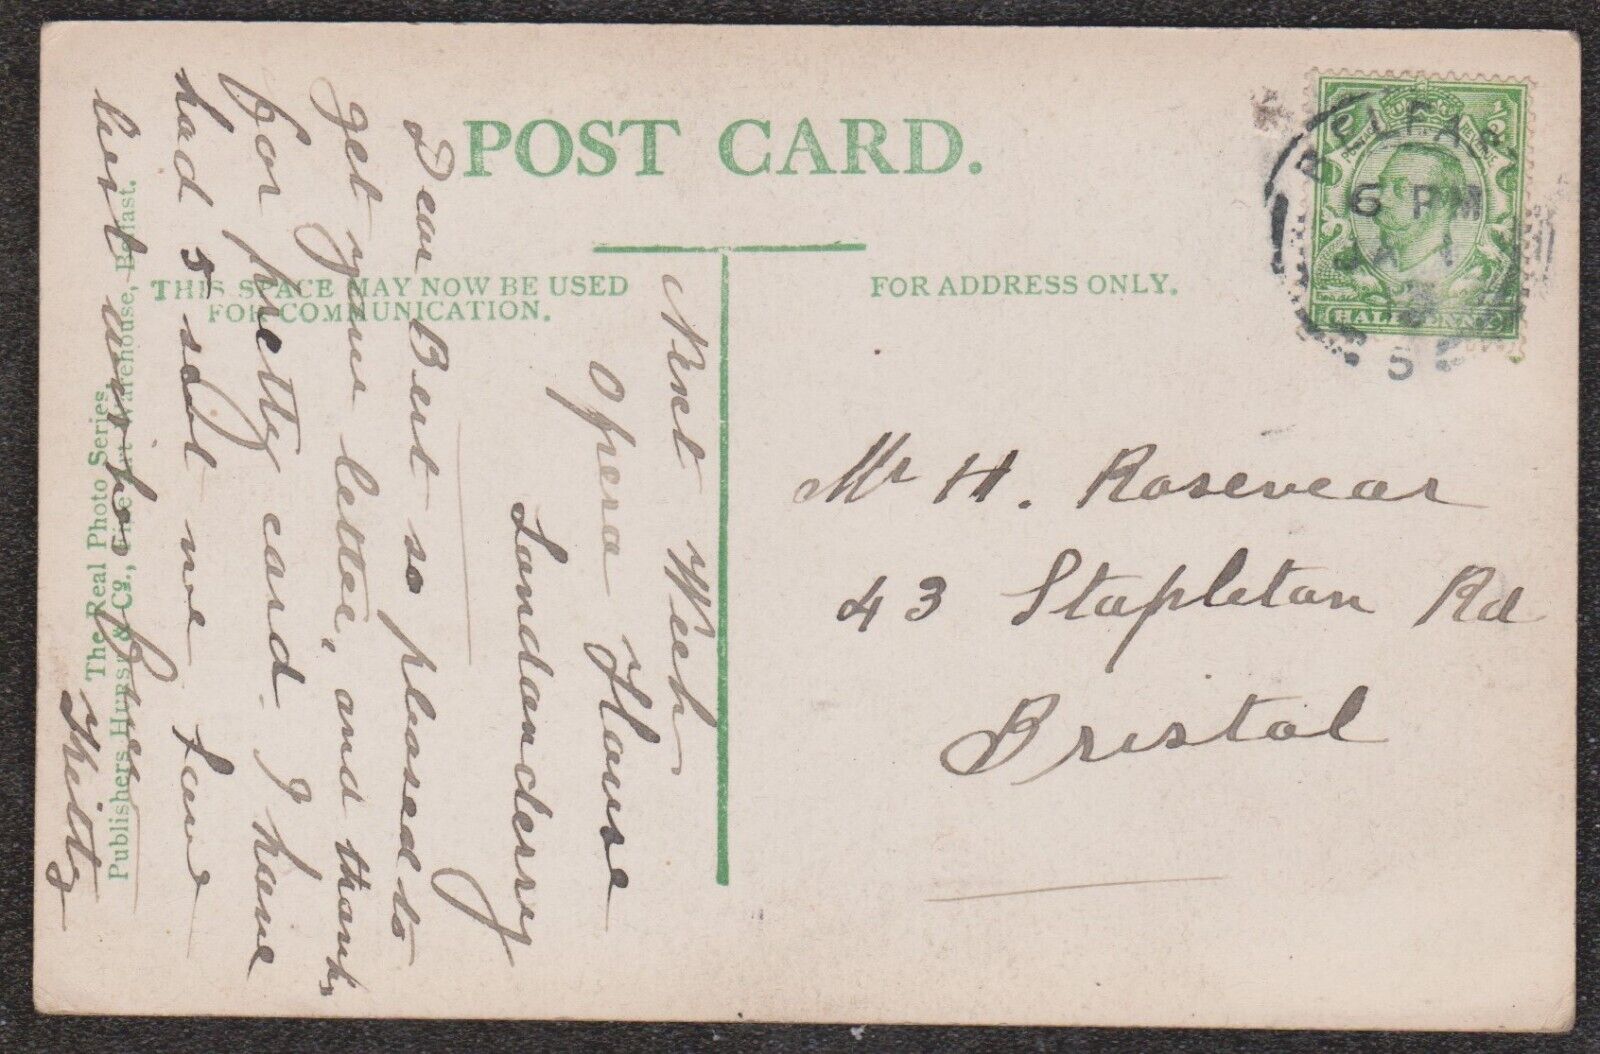 POST CARD.
THIS SPACE MAY NOW BE USED
FOR COMMUNICATION.
FOR ADDRESS ONLY.
BELFAST
6 PM
JA 1
HALFPENNY
Mr H. Rosevear
43 Stapleton Rd
Bristol
Next Week
Opera House
Londonderry
Dear Bert so pleased to
get your letter, and thanks
for pretty card. I have
had 5 sent me
best wishes
Kitty
The Real Photo Series.
Publishers Hurst & Co., Fine Art Warehouse, Belfast.